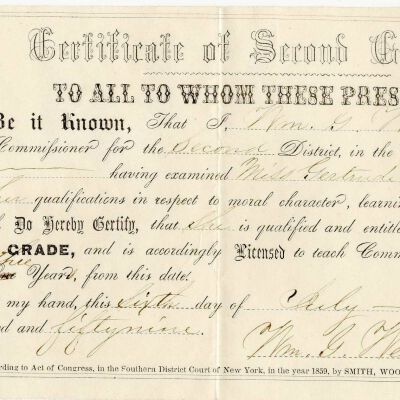 Certificate of Second G
TO ALL TO WHOM THESE PRES
Be it Known, That I, Wm. G. W
Commissioner for the Second District, in the
having examined Miss Gertrude
her qualifications in respect to moral character, learnin
Do Hereby Certify, that She is qualified and entitle
GRADE, and is accordingly Licensed to teach Comm
Year, from this date.
my hand, this Sixth day of July
d and fiftynine.
Wm. G. W
cording to Act of Congress, in the Southern District Court of New York, in the year 1859, by SMITH, WOO